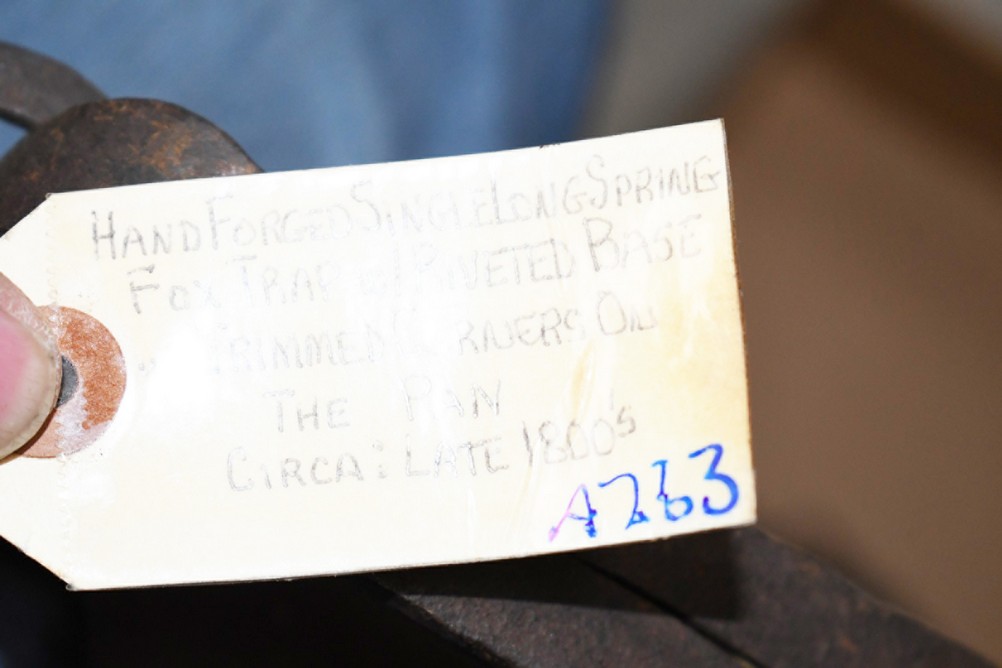 HAND FORGED SINGLE LONG SPRING
FOX TRAP W/ RIVETED BASE
TRIMMED CORNERS ON
THE PAN
CIRCA: LATE 1800's
A263